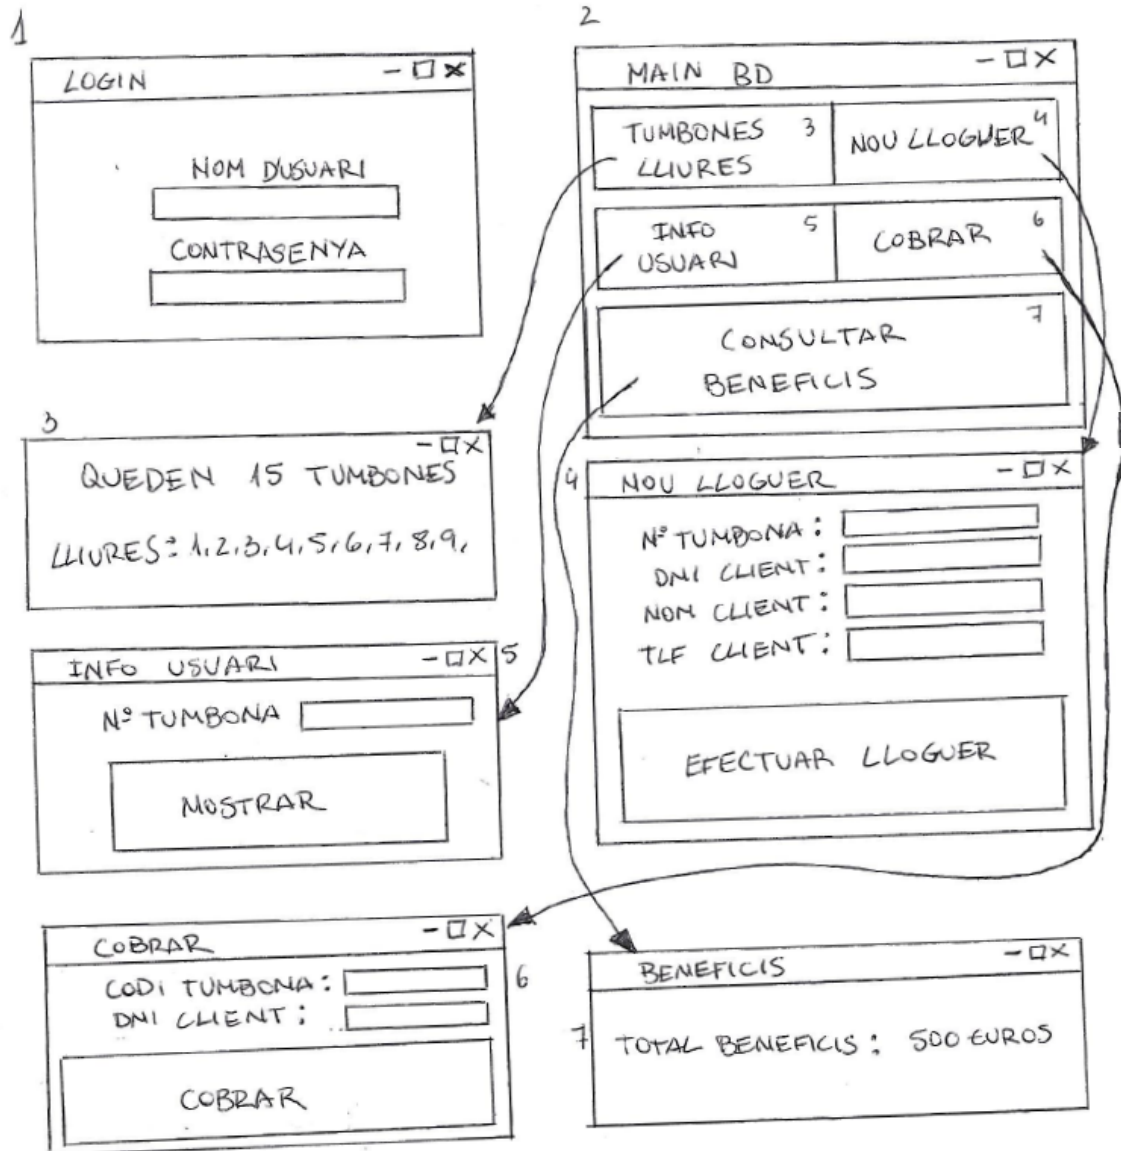 1
LOGIN
NOM D'USUARI
CONTRASENYA
2
MAIN BD
TUMBONES 3
LLIURES
NOU LLOGUER 4
INFO 5
USUARI
COBRAR 6
CONSULTAR 7
BENEFICIS
3
QUEDEN 15 TUMBONES
LLIURES: 1, 2, 3, 4, 5, 6, 7, 8, 9,
4
NOU LLOGUER
Nº TUMBONA:
DNI CLIENT:
NOM CLIENT:
TLF CLIENT:
EFECTUAR LLOGUER
INFO USUARI
5
Nº TUMBONA
MOSTRAR
COBRAR
6
CODI TUMBONA:
DNI CLIENT:
COBRAR
BENEFICIS
7
TOTAL BENEFICIS: 500 EUROS